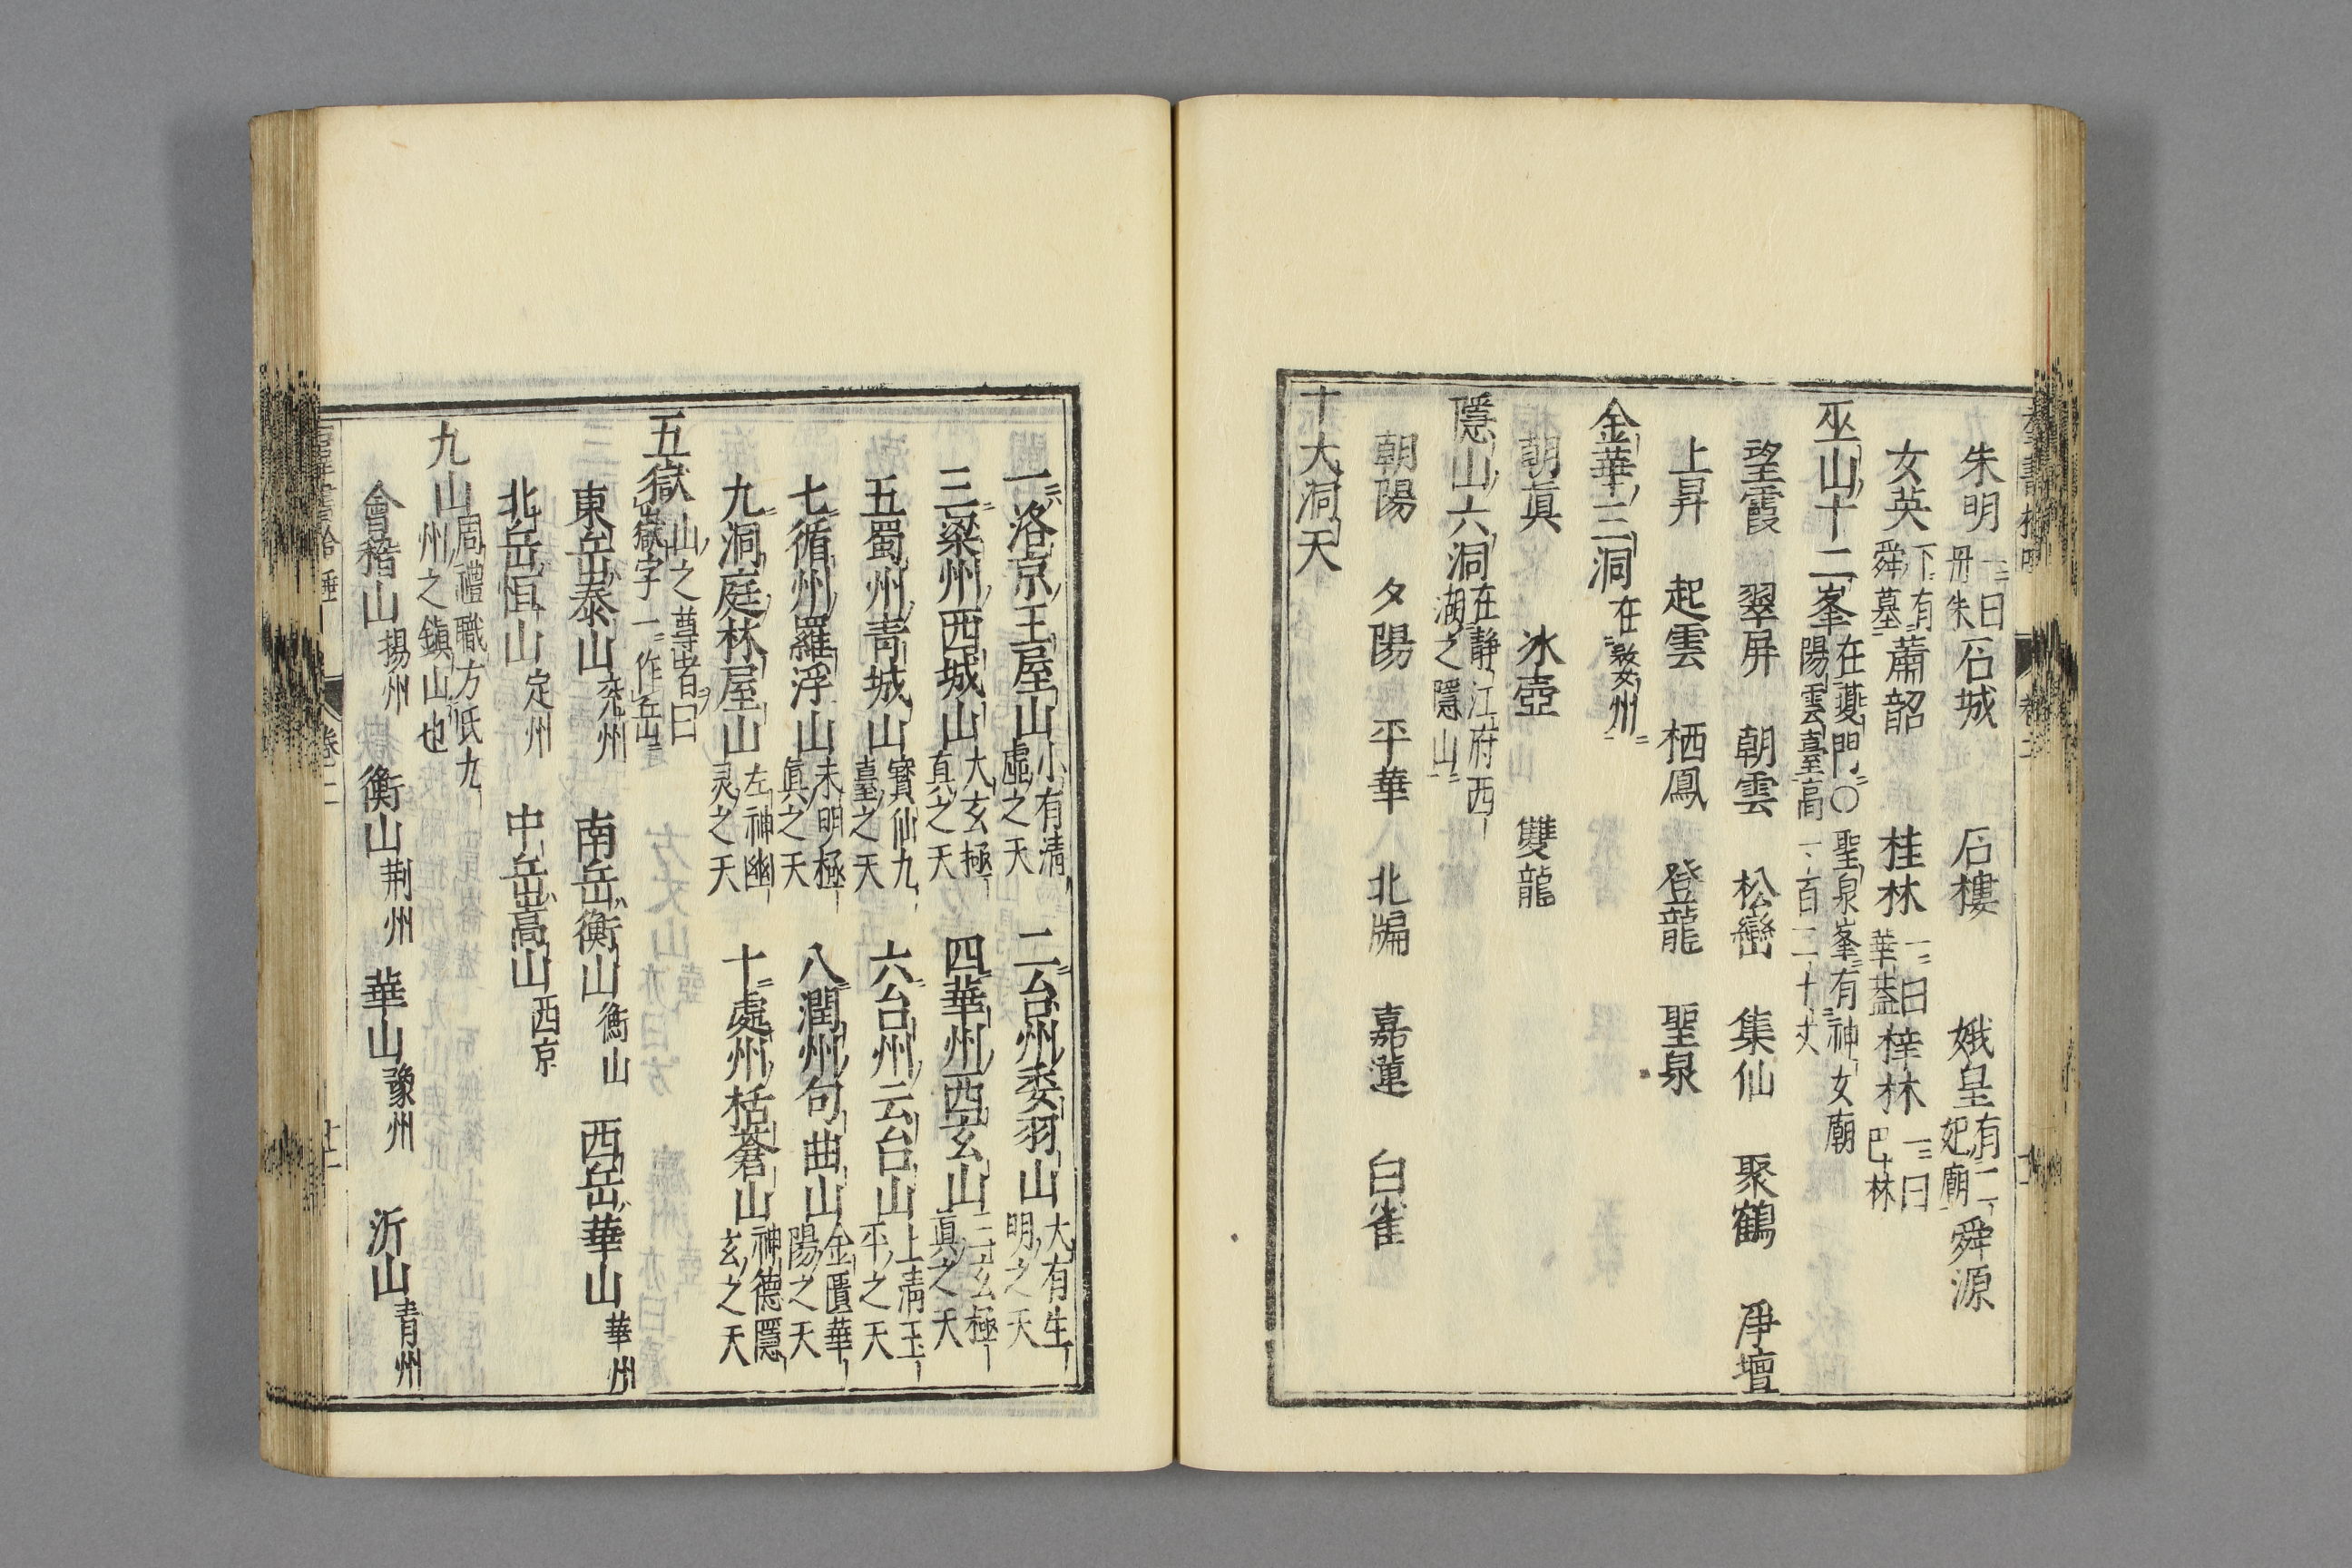 朱明一曰丹朱石城　石樓　娥皇有二妃廟舜源
女英下有舜墓蕭韶　桂林一曰華蓋梓林一曰巴林
巫山十二峯在夔門〇陽雲臺高一百二十丈聖泉峯有神女廟
望霞　翠屏　朝雲　松巒　集仙　聚鶴　淨壇
上昇　起雲　栖鳳　登龍　聖泉
金華三洞在婺州
朝眞　冰壺　雙龍
隱山六洞在静江府西湖之隱山
朝陽　夕陽　平華　北牖　嘉蓮　白雀
十大洞天
一洛京王屋山小有清虛之天　二台州委羽山大有生明之天
三梁州西城山大玄極真之天　四華州西玄山三玄極眞之天
五蜀州青城山寳仙九臺之天　六台州云台山上清玉平之天
七循州羅浮山朱明極眞之天　八潤州句曲山金匱華陽之天
九洞庭林屋山左神幽灵之天　十處州栝蒼山神德隱玄之天
五嶽山之尊者曰嶽字一作岳
東岳泰山兖州　南岳衡山衡山　西岳華山華州
北岳恒山定州　中岳嵩山西京
九山周禮職方氏九州之鎭山也
會稽山揚州　衡山荆州　華山豫州　沂山青州
卷二